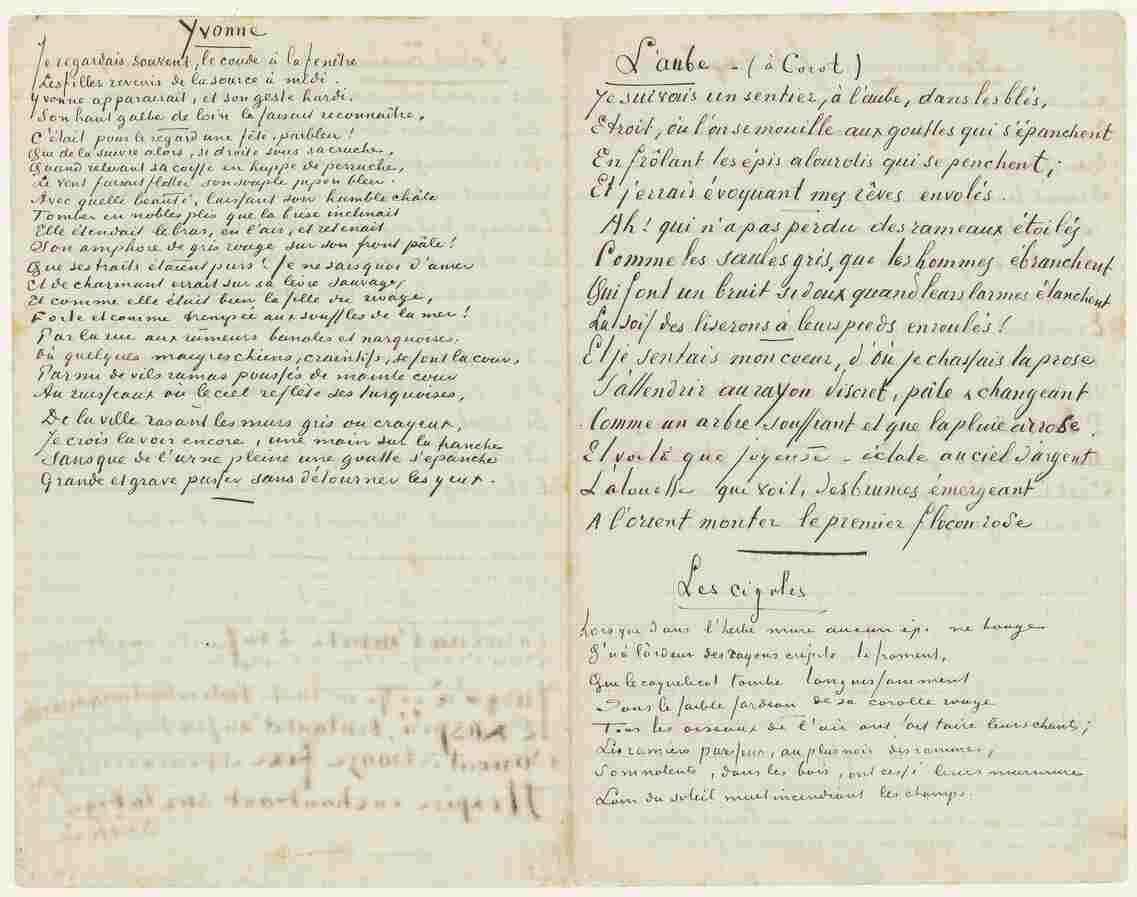 Yvonne
Je regardais souvent, le coude à la fenêtre
Les filles revenir de la source à midi.
Yvonne apparaissait, et son geste hardi.
Son haut galbe de loin la faisait reconnaître,
C'était pour le regard une fête, parbleu!
Que de la suivre alors, si droite sous sa cruche,
Quand relevant sa coiffe en huppe de perruche,
Le vent faisait flotter son souple jupon bleu.
Avec quelle beauté, laissant son humble châle
Tomber en nobles plis que la brise inclinait
Elle étendait le bras, en l'air, et retenait
Son amphore de grès rouge sur son front pâle!
Que ses traits étaient purs! Je ne sais quoi d'amer
Et de charmant errait sur sa lèvre sauvage,
Et comme elle était bien la fille du rivage,
Forte et comme trempée aux souffles de la mer!
Par la rue aux rumeurs banales et narquoises.
Où quelques maigres chiens, craintifs, se font la cour,
Parmi de vils ramas poussés de mainte cour
Au ruisseaux où le ciel reflète ses turquoises,
De la ville rasant les murs gris ou crayeux,
Je crois la voir encore, une main sur la hanche
Sans que de l'urne pleine une goutte s'épanche
Grande et grave passer sans détourner les yeux.
L'aube - (à Corot)
Je suivais un sentier, à l'aube, dans les blés,
Etroit, où l'on se mouille aux gouttes qui s'épanchent
En frôlant les épis alourdis qui se penchent;
Et j'errais évoquant mes rêves envolés.
Ah! qui n'a pas perdu des rameaux étoilés
Comme les saules gris, que les hommes ébranchent
Qui font un bruit si doux quand leurs larmes étanchent
La soif des liserons à leurs pieds enroulés!
Et je sentais mon coeur, d'où je chassais la prose
S'attendrir au rayon discret, pâle & changeant
Comme un arbre souffrant et que la pluie arrose.
Et voilà que joyeuse - éclate au ciel d'argent
L'alouette qui voit, des brumes émergeant
A l'orient monter le premier flocon rose
Les cigales
Lorsque dans l'herbe mure aucun épi ne bouge
Qu'à l'ardeur des rayons crépite le froment,
Que le coquelicot tombe languissamment
Sous le faible fardeau de sa corolle rouge
Tous les oiseaux de l'air ont fait taire leurs chants;
Les ramiers paresseux, au plus noir des ramures,
Somnolents, dans les bois, ont cessé leurs murmures
Loin du soleil muet incendiant les champs.